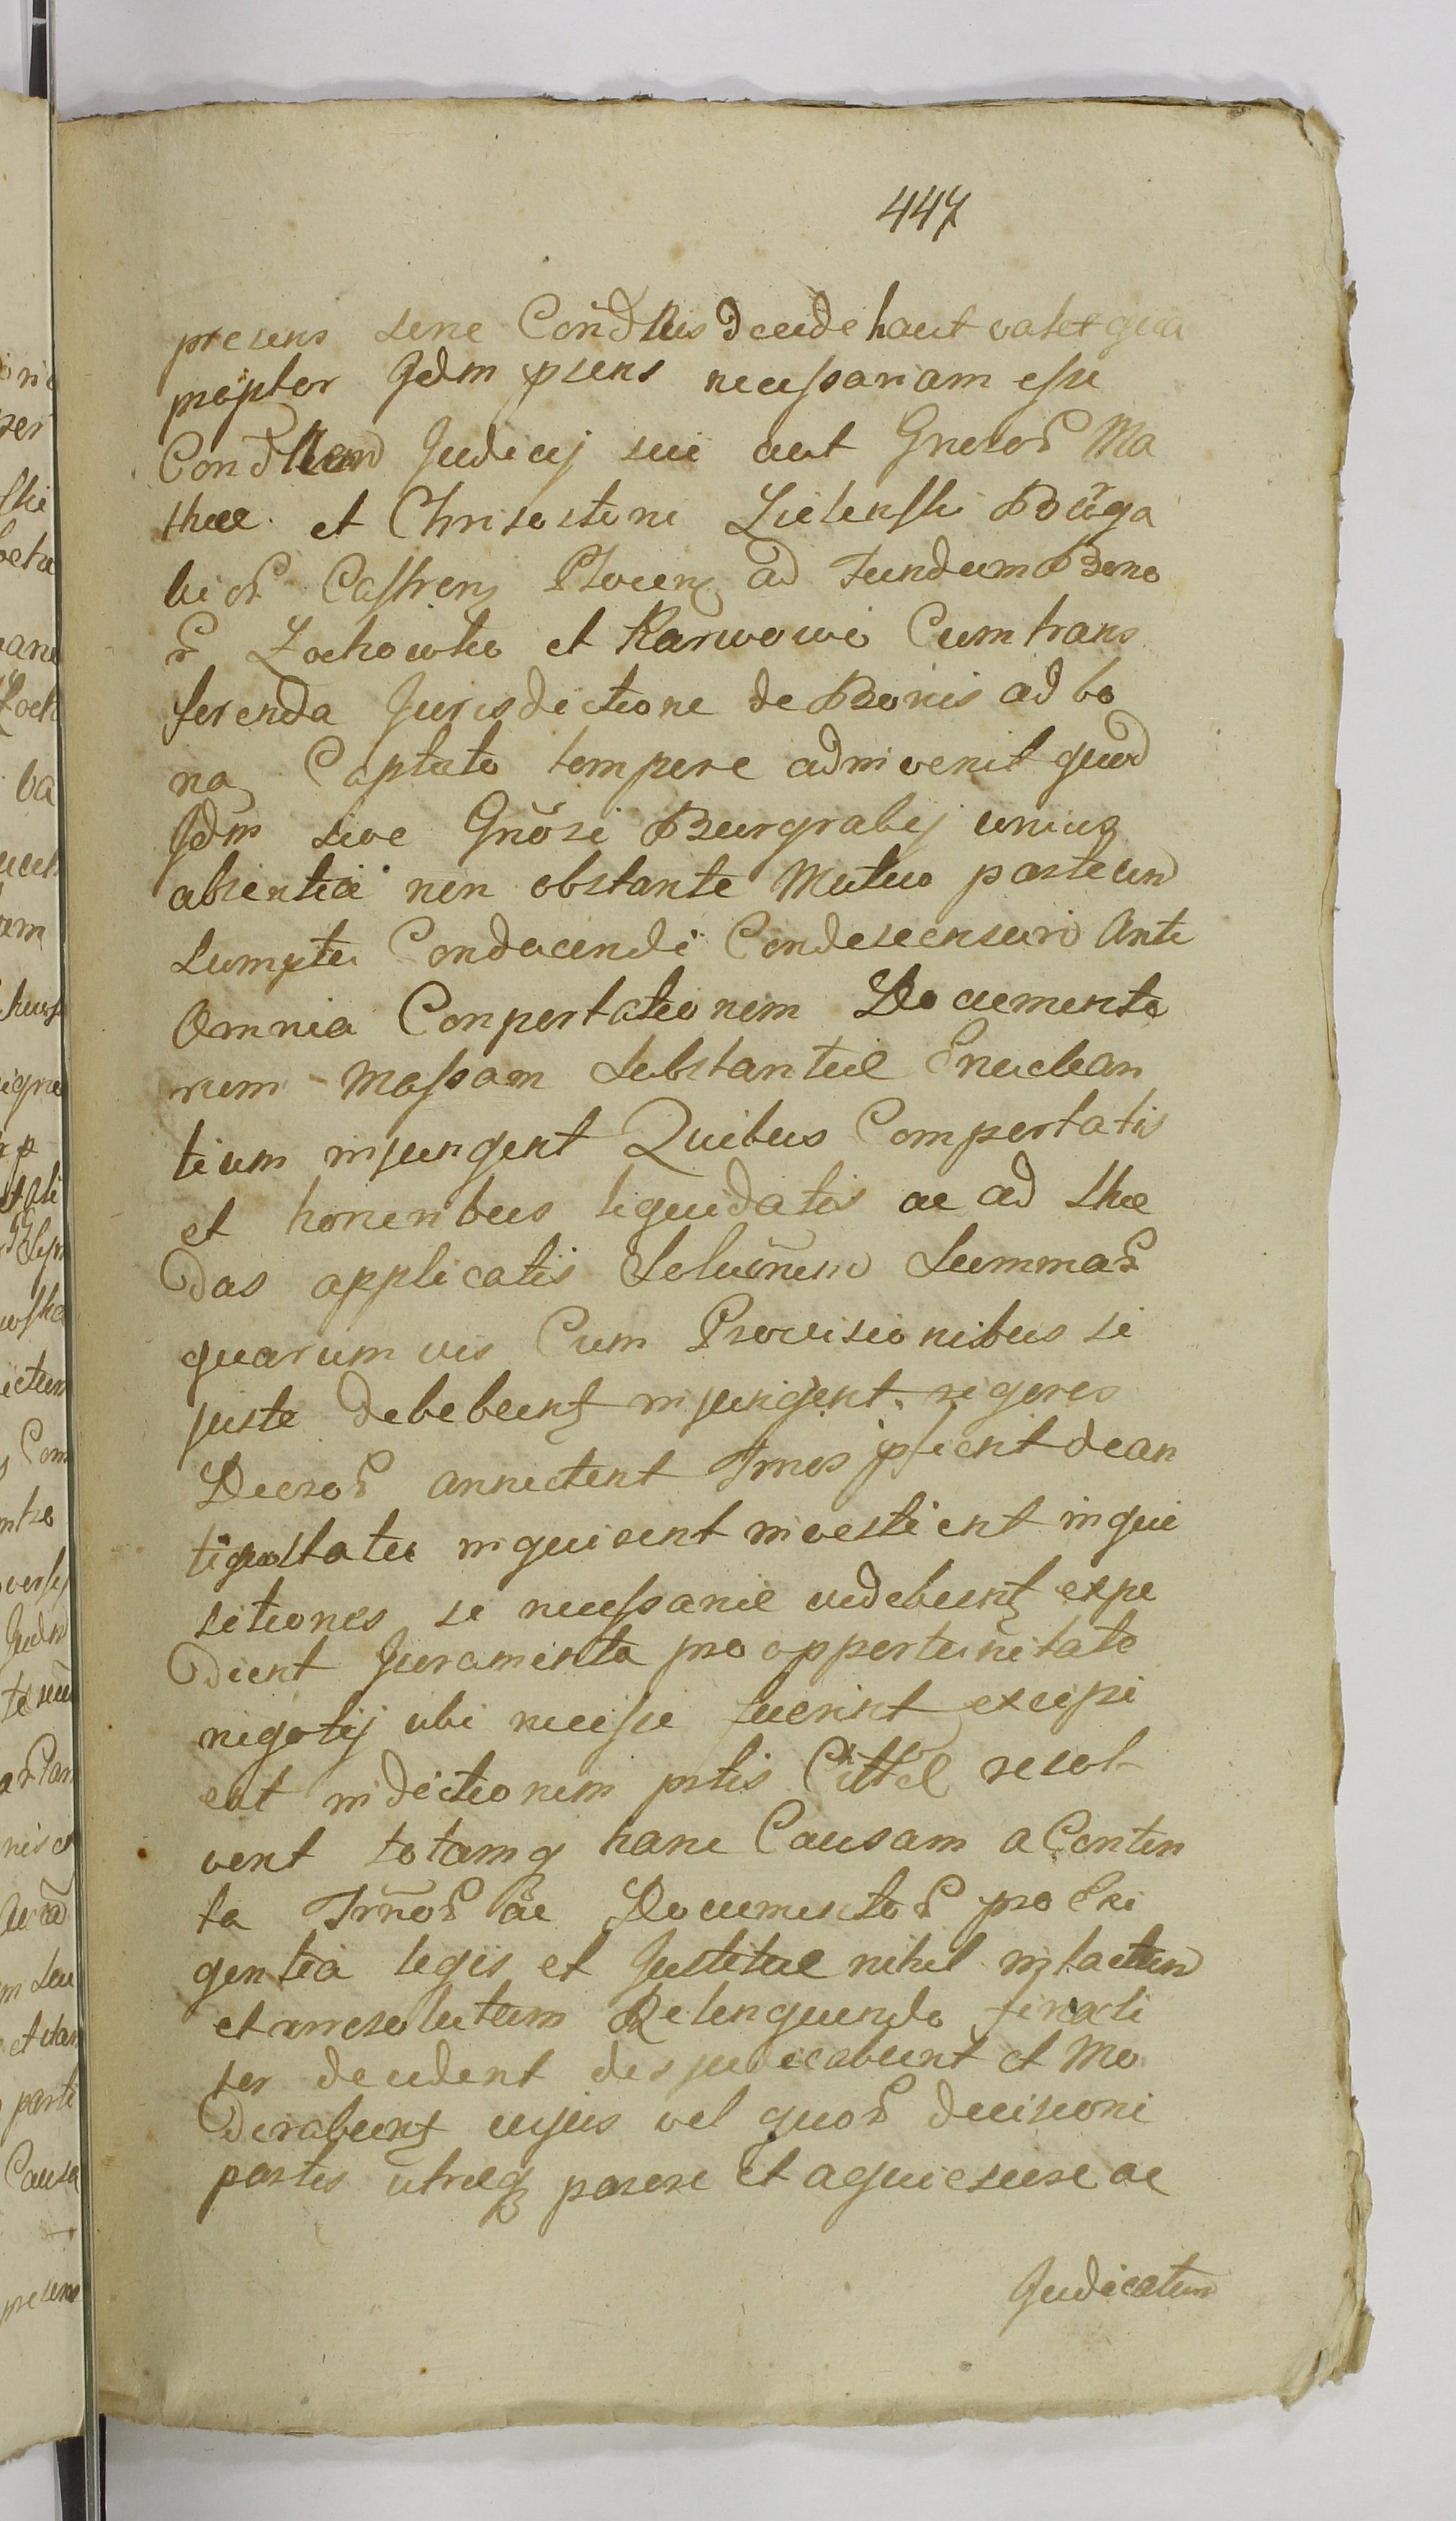 447
presens sine Cond̃llus decidehaut valet qua
propter Jdm psens necessariam esse
Cond̃llem̃ Judicij sui aut Gneroꝝ Ma
theæ et Chrisostomi Zielenski Bũga
bioꝝ Castrenꝭ Plocenꝭ ad Fundum Bono
ꝝ Zochowko et Karwowo Cum trans
ferenda Jurisdictione de Bonis ad bo
na, Captato tempere adinvenit quod
Jdm sive Gnõsi Burgrabij unius
absentia non obstante Mutuo partium
Sumptu Conducendi Condescensuri Ante
Omnia Conportationem Documento
rum Massam Substantiæ Enuclean
tium injungent Quibus Comportatis
et honeribus liquidatis ac ad Sche
das applicatis Soluõnem Summaꝝ
quarum vis Cum Provisionibus si
juste debebuntꝭ injungent, rigores
Decroꝝ annectent Trnos pficient de an
tiquo statu inquirent investient inqui
sitiones si necessariæ videbuntꝭ expe
dient Juramenta pro opportunitate
negotij ubi necesse fuerint excipi
ent indictionem ptis Cittæ resol
vent totamq hanc Causam a Conten
ta Trñoꝝ ac Documentoꝝ pro Exi
gentia legis et Justitiae nihil intactum
et irresolutum Relinquendo finali
ter decident desjudicabunt et Mo
derabuntꝭ cujus vel quoꝝ decisioni
partes utræqꝫ parere et acquiescere ac
Judicatum